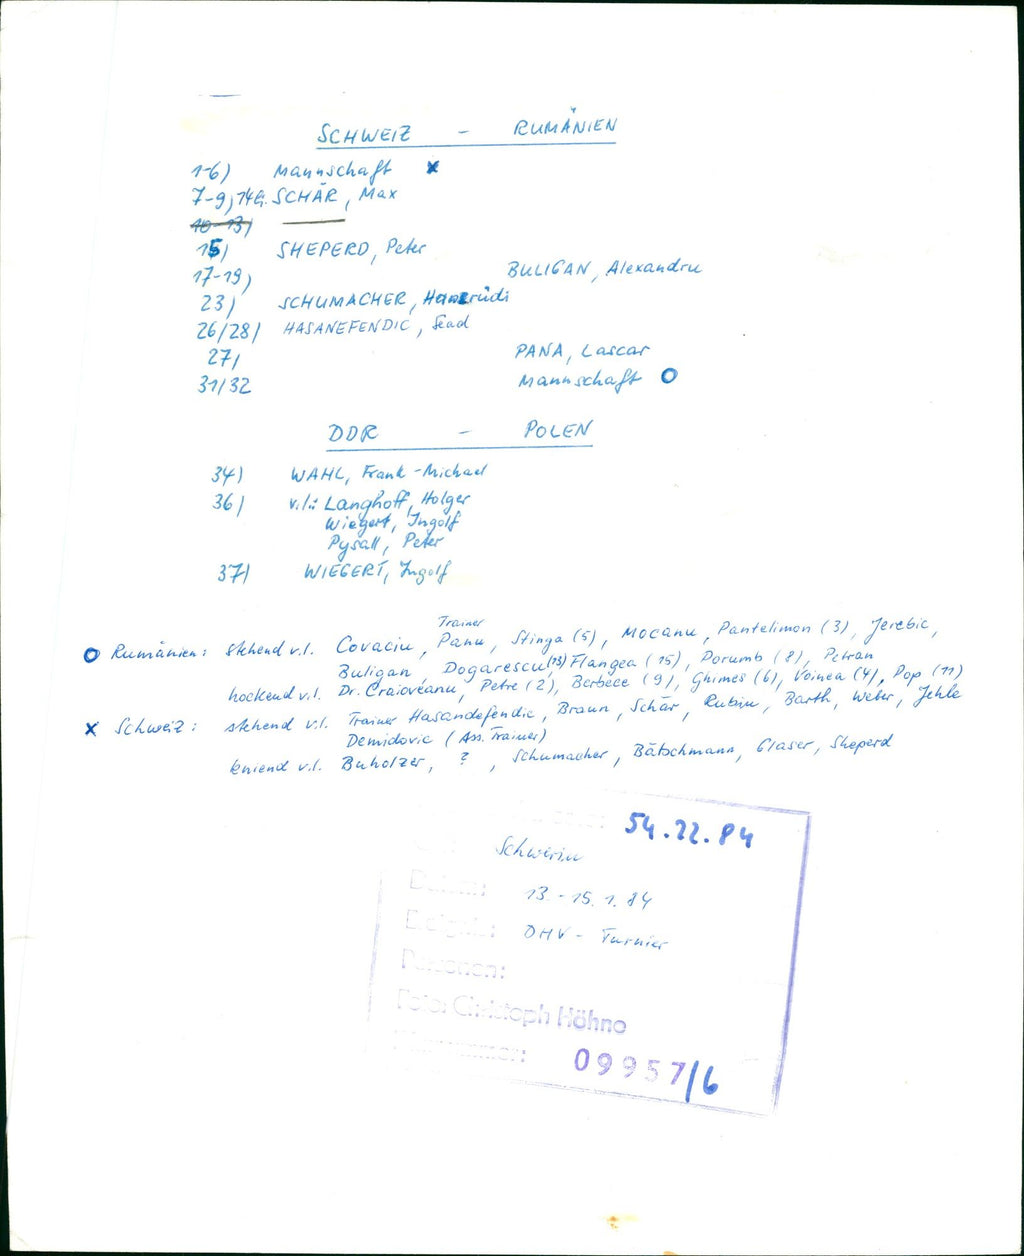 SCHWEIZ - RUMÄNIEN
1-6) Mannschaft x
7-9, 14 SCHÄR, Max
10-13)
15) SHEPERD, Peter
17-19) BULIGAN, Alexandru
23) SCHUMACHER, Hansrüdi
26/28) HASANEFENDIC, Sead
27) PANA, Lascar
31/32 Mannschaft O
DDR - POLEN
34) WAHL, Frank-Michael
36) v.l.: Langhoff, Holger
Wiegert, Ingolf
Pysall, Peter
37) WIEGERT, Ingolf
Trainer
O Rumänien: stehend v.l. Covaciu, Panu, Stinga (5), Mocanu, Pantelimon (3), Jerebic,
Buligan Dogarescu (13) Flangea (15), Porumb (8), Petran
hockend v.l. Dr. Craioveanu, Petre (2), Berbece (9), Ghimes (6), Voinea (4), Pop (11)
x Schweiz: stehend v.l. Trainer Hasandefendic, Braun, Schär, Rubin, Barth, Weber, Jehle
Demidovic (Ass. Trainer)
kniend v.l. Buholzer, ?, Schumacher, Bätschmann, Glaser, Sheperd
54.22.84
Schwerin
Datum: 13.-15.1.84
Ereignis: DHV-Turnier
Personen:
Foto: Christoph Höhne
09957/6